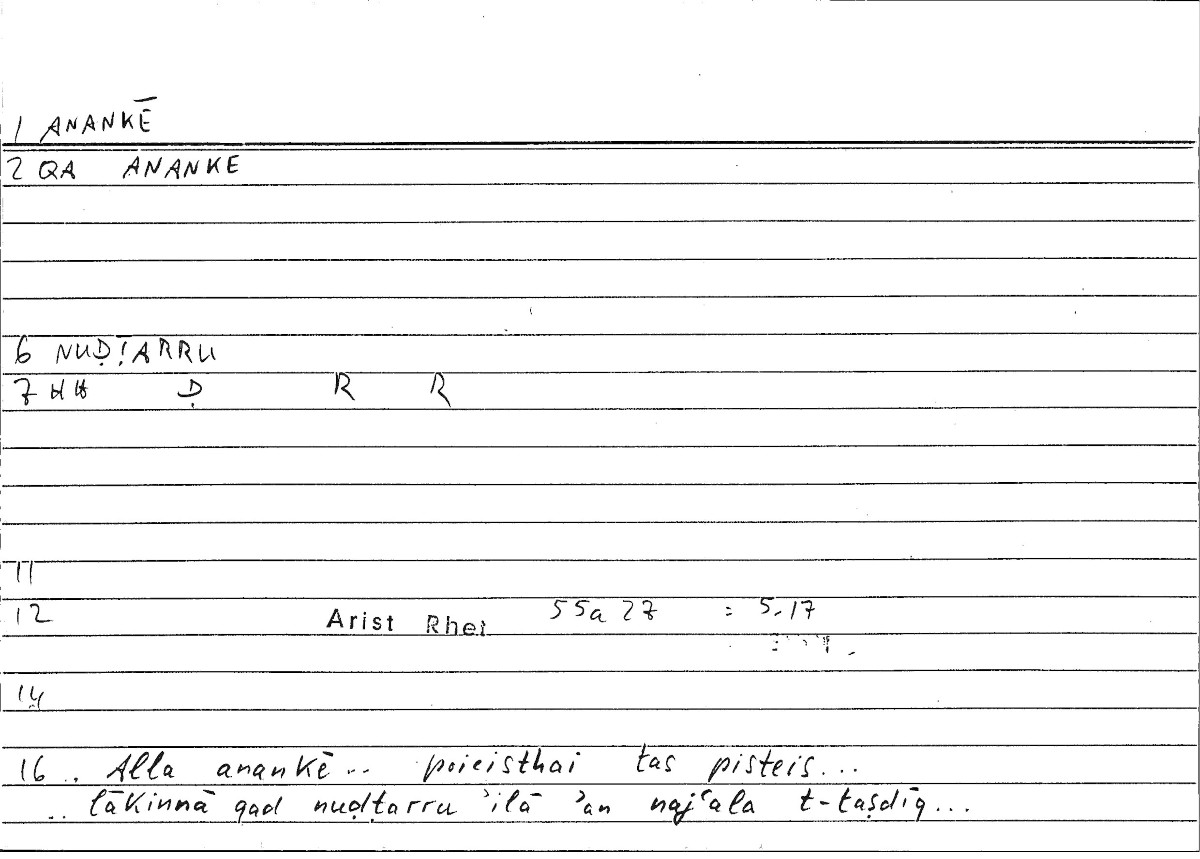 1 ANANKĒ
2 QA ANANKE
6 NUḌṬARRU
7 HH Ḍ R R
11
12 Arist Rhet 55a 27 = 5.17
14
16 .. Alla anankē... poieisthai tas pisteis...
.. lākinnā qad nuḍṭarru ʾilā ʾan najʿala t-taṣdīq...